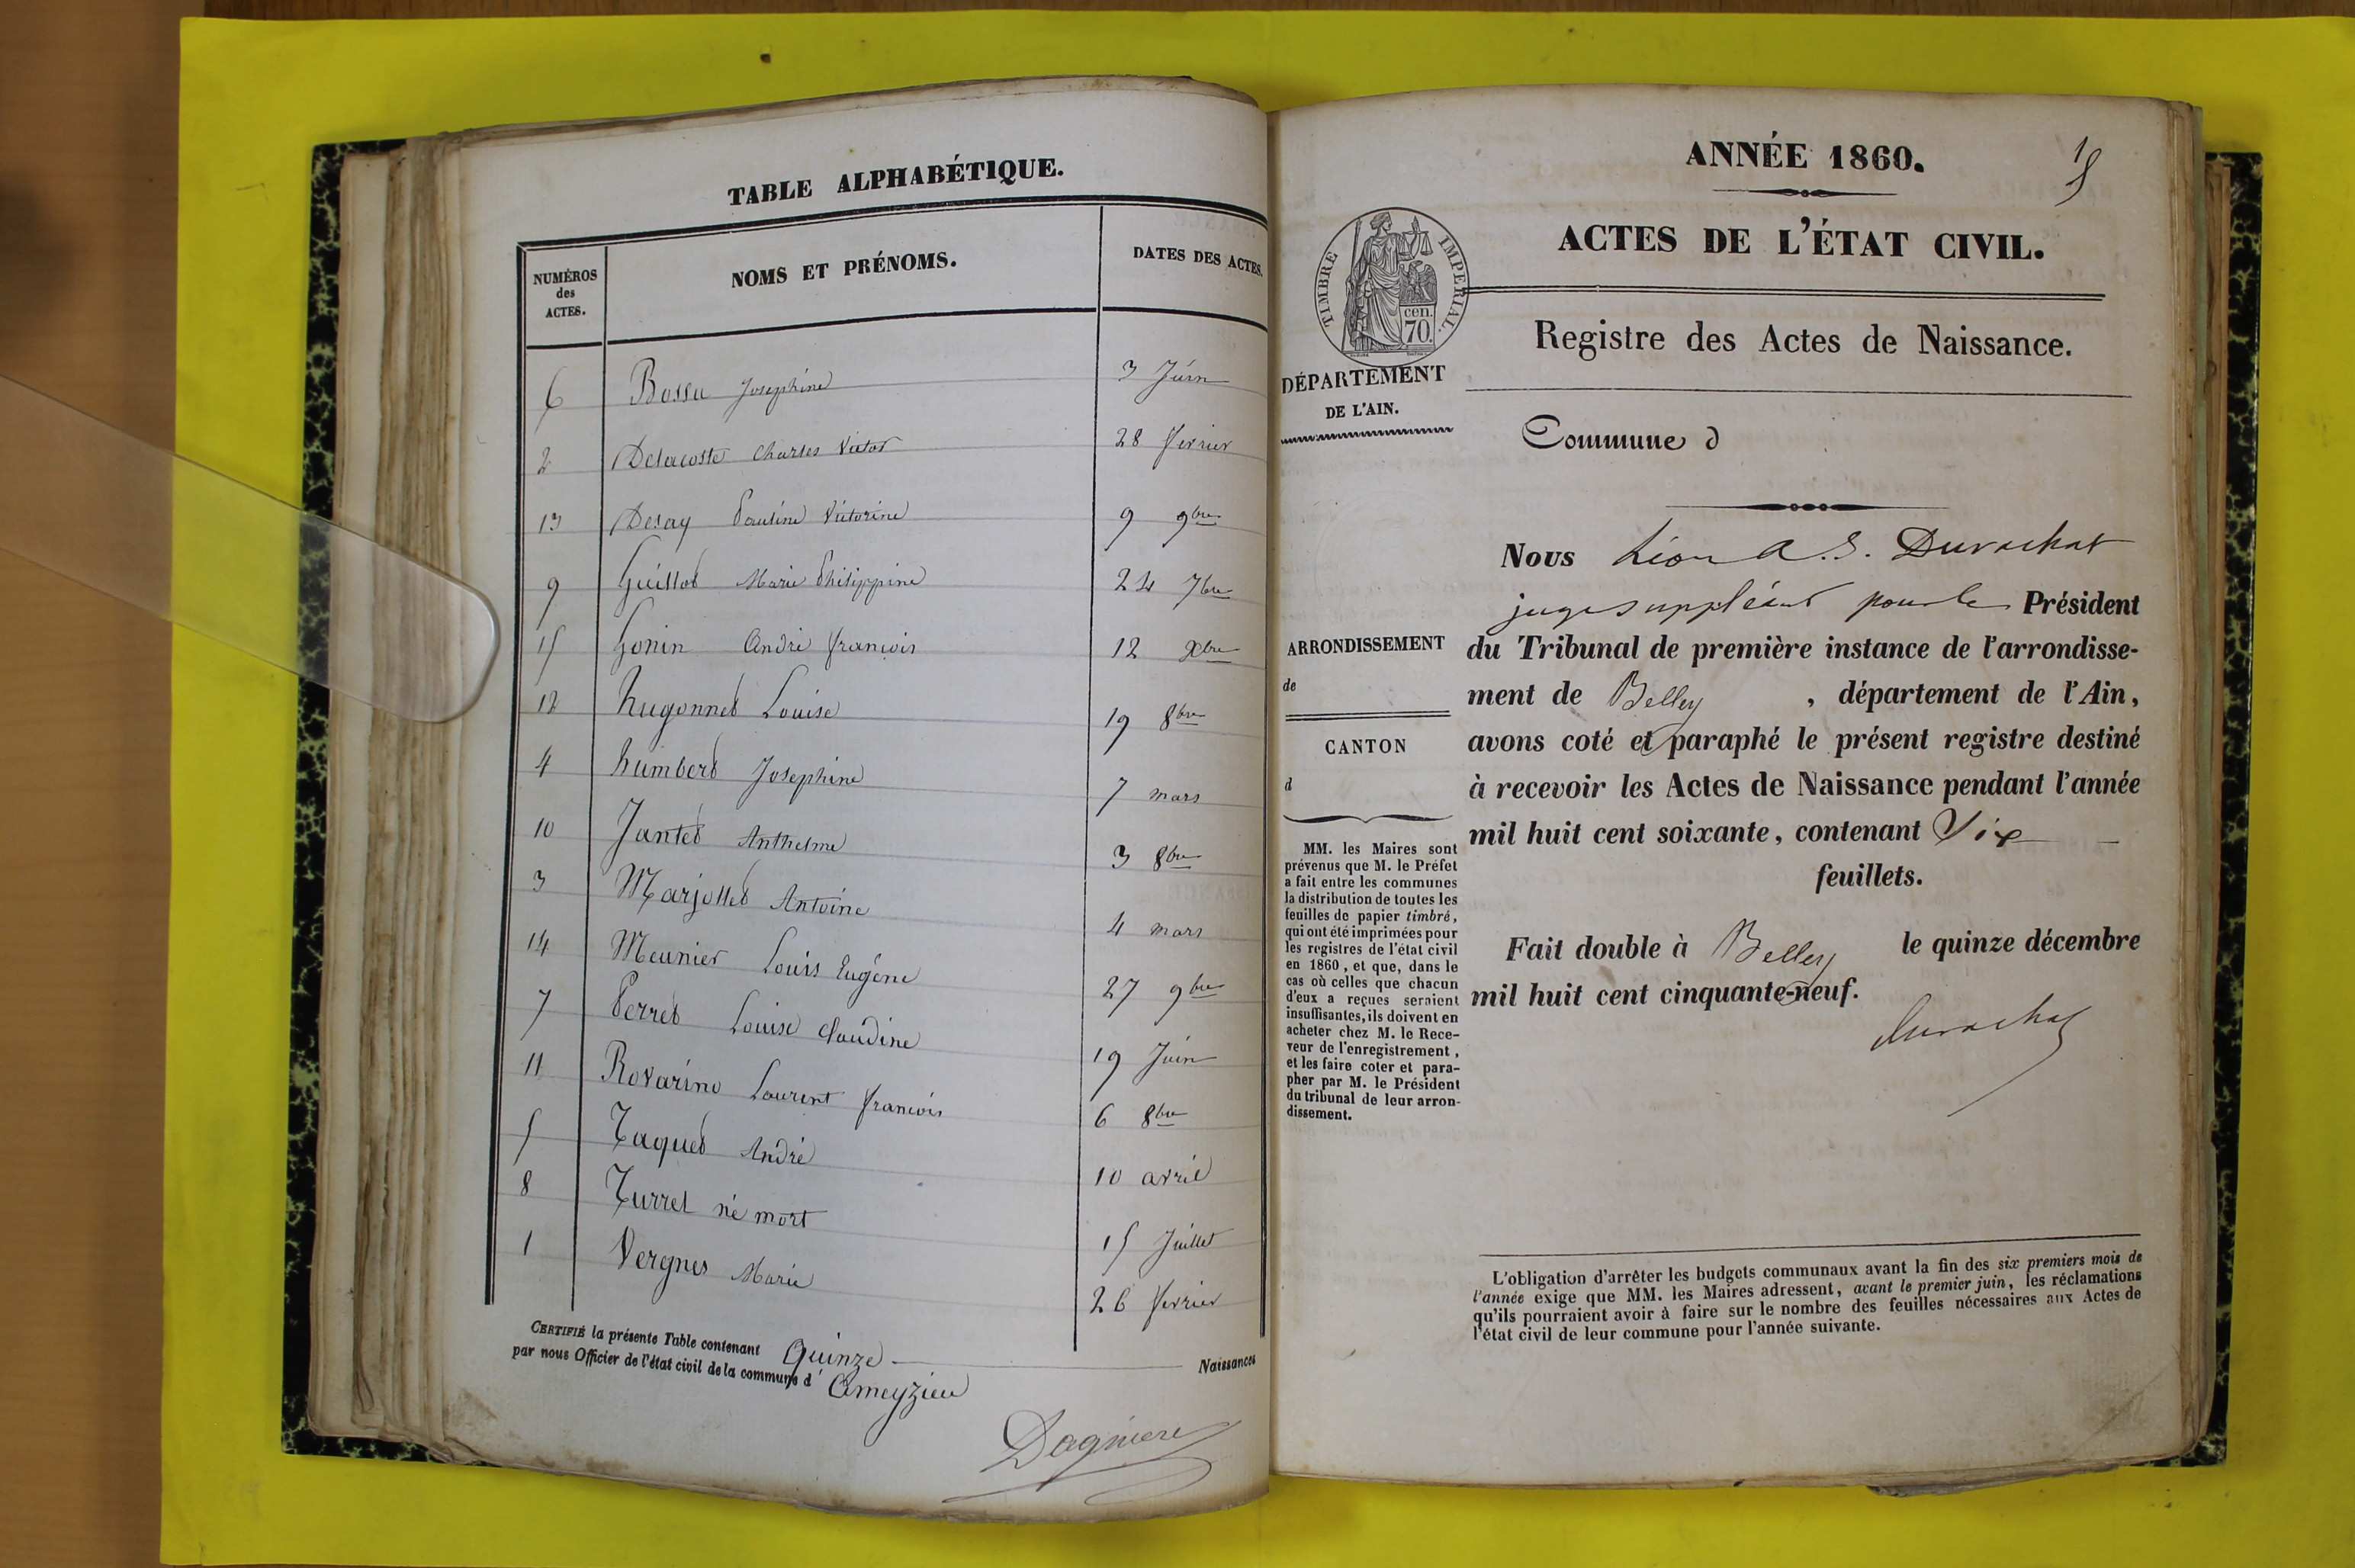 TABLE ALPHABÉTIQUE.
NUMÉROS des ACTES. NOMS ET PRÉNOMS. DATES DES ACTES.
6 Bossu Josephine 3 Juin
2 Delacoste Charles Victor 28 fevrier
13 Desay Pauline Victorine 9 9bre
9 Guillot Marie Philippine 24 7bre
15 Gonin André françois 12 Xbre
12 hugonnet Louise 19 8bre
4 humbert Josephine 7 mars
10 Jantet Anthelme 3 8bre
3 Marjollet Antoine 4 mars
14 Meunier Louis Eugène 27 9bre
7 Perret Louise Claudine 19 Juin
11 Rovarino Laurent françois 6 8bre
5 Taquet André 10 avril
8 Turrel né mort 15 Juillet
1 Vergnes Marie 26 fevrier
CERTIFIÉ la présente Table contenant Quinze Naissances
par nous Officier de l'état civil de la commune d' Ameyzieu
Dagniere
ANNÉE 1860.
ACTES DE L'ÉTAT CIVIL.
TIMBRE IMPERIAL.
cen.
70.
Registre des Actes de Naissance.
DÉPARTEMENT
DE L'AIN.
Commune d
Nous Léon A. S. Durochat
juge suppléant pour le Président
du Tribunal de première instance de l'arrondisse-
ment de Belley , département de l'Ain,
avons coté et paraphé le présent registre destiné
à recevoir les Actes de Naissance pendant l'année
mil huit cent soixante, contenant Six
feuillets.
Fait double à Belley le quinze décembre
mil huit cent cinquante-neuf.
Durochat
ARRONDISSEMENT
de
CANTON
d
MM. les Maires sont
prévenus que M. le Préfet
a fait entre les communes
la distribution de toutes les
feuilles de papier timbré,
qui ont été imprimées pour
les registres de l'état civil
en 1860, et que, dans le
cas où celles que chacun
d'eux a reçues seraient
insuffisantes, ils doivent en
acheter chez M. le Rece-
veur de l'enregistrement,
et les faire coter et para-
pher par M. le Président
du tribunal de leur arron-
dissement.
L'obligation d'arrêter les budgets communaux avant la fin des six premiers mois de
l'année exige que MM. les Maires adressent, avant le premier juin, les réclamations
qu'ils pourraient avoir à faire sur le nombre des feuilles nécessaires aux Actes de
l'état civil de leur commune pour l'année suivante.